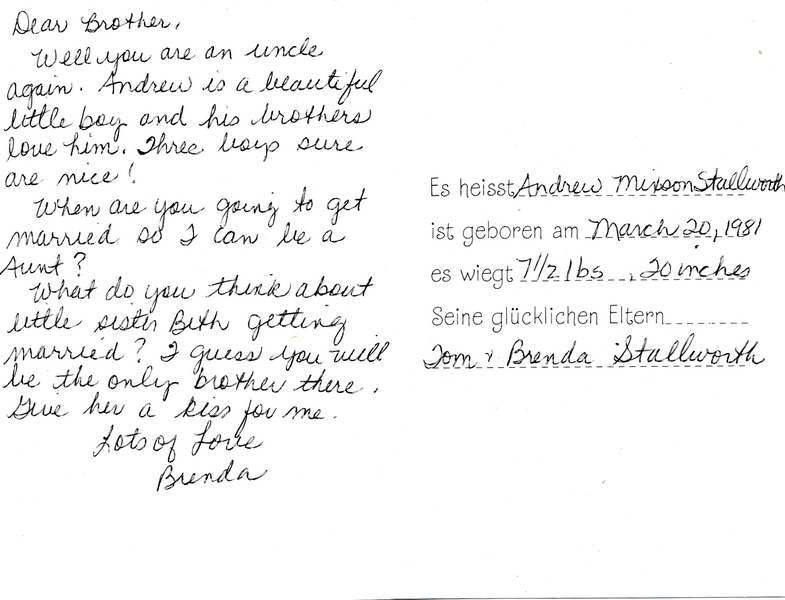 Dear Brother,
Well you are an uncle
again. Andrew is a beautiful
little boy and his brothers
love him. Three boys sure
are nice!
When are you going to get
married so I can be a
Aunt?
What do you think about
little sister Beth getting
married? I guess you will
be the only brother there.
Give her a kiss for me.
Lots of Love
Brenda
Es heisst Andrew Mixson Stallworth
ist geboren am March 20, 1981
es wiegt 7 1/2 lbs , 20 inches
Seine glücklichen Eltern
Tom & Brenda Stallworth